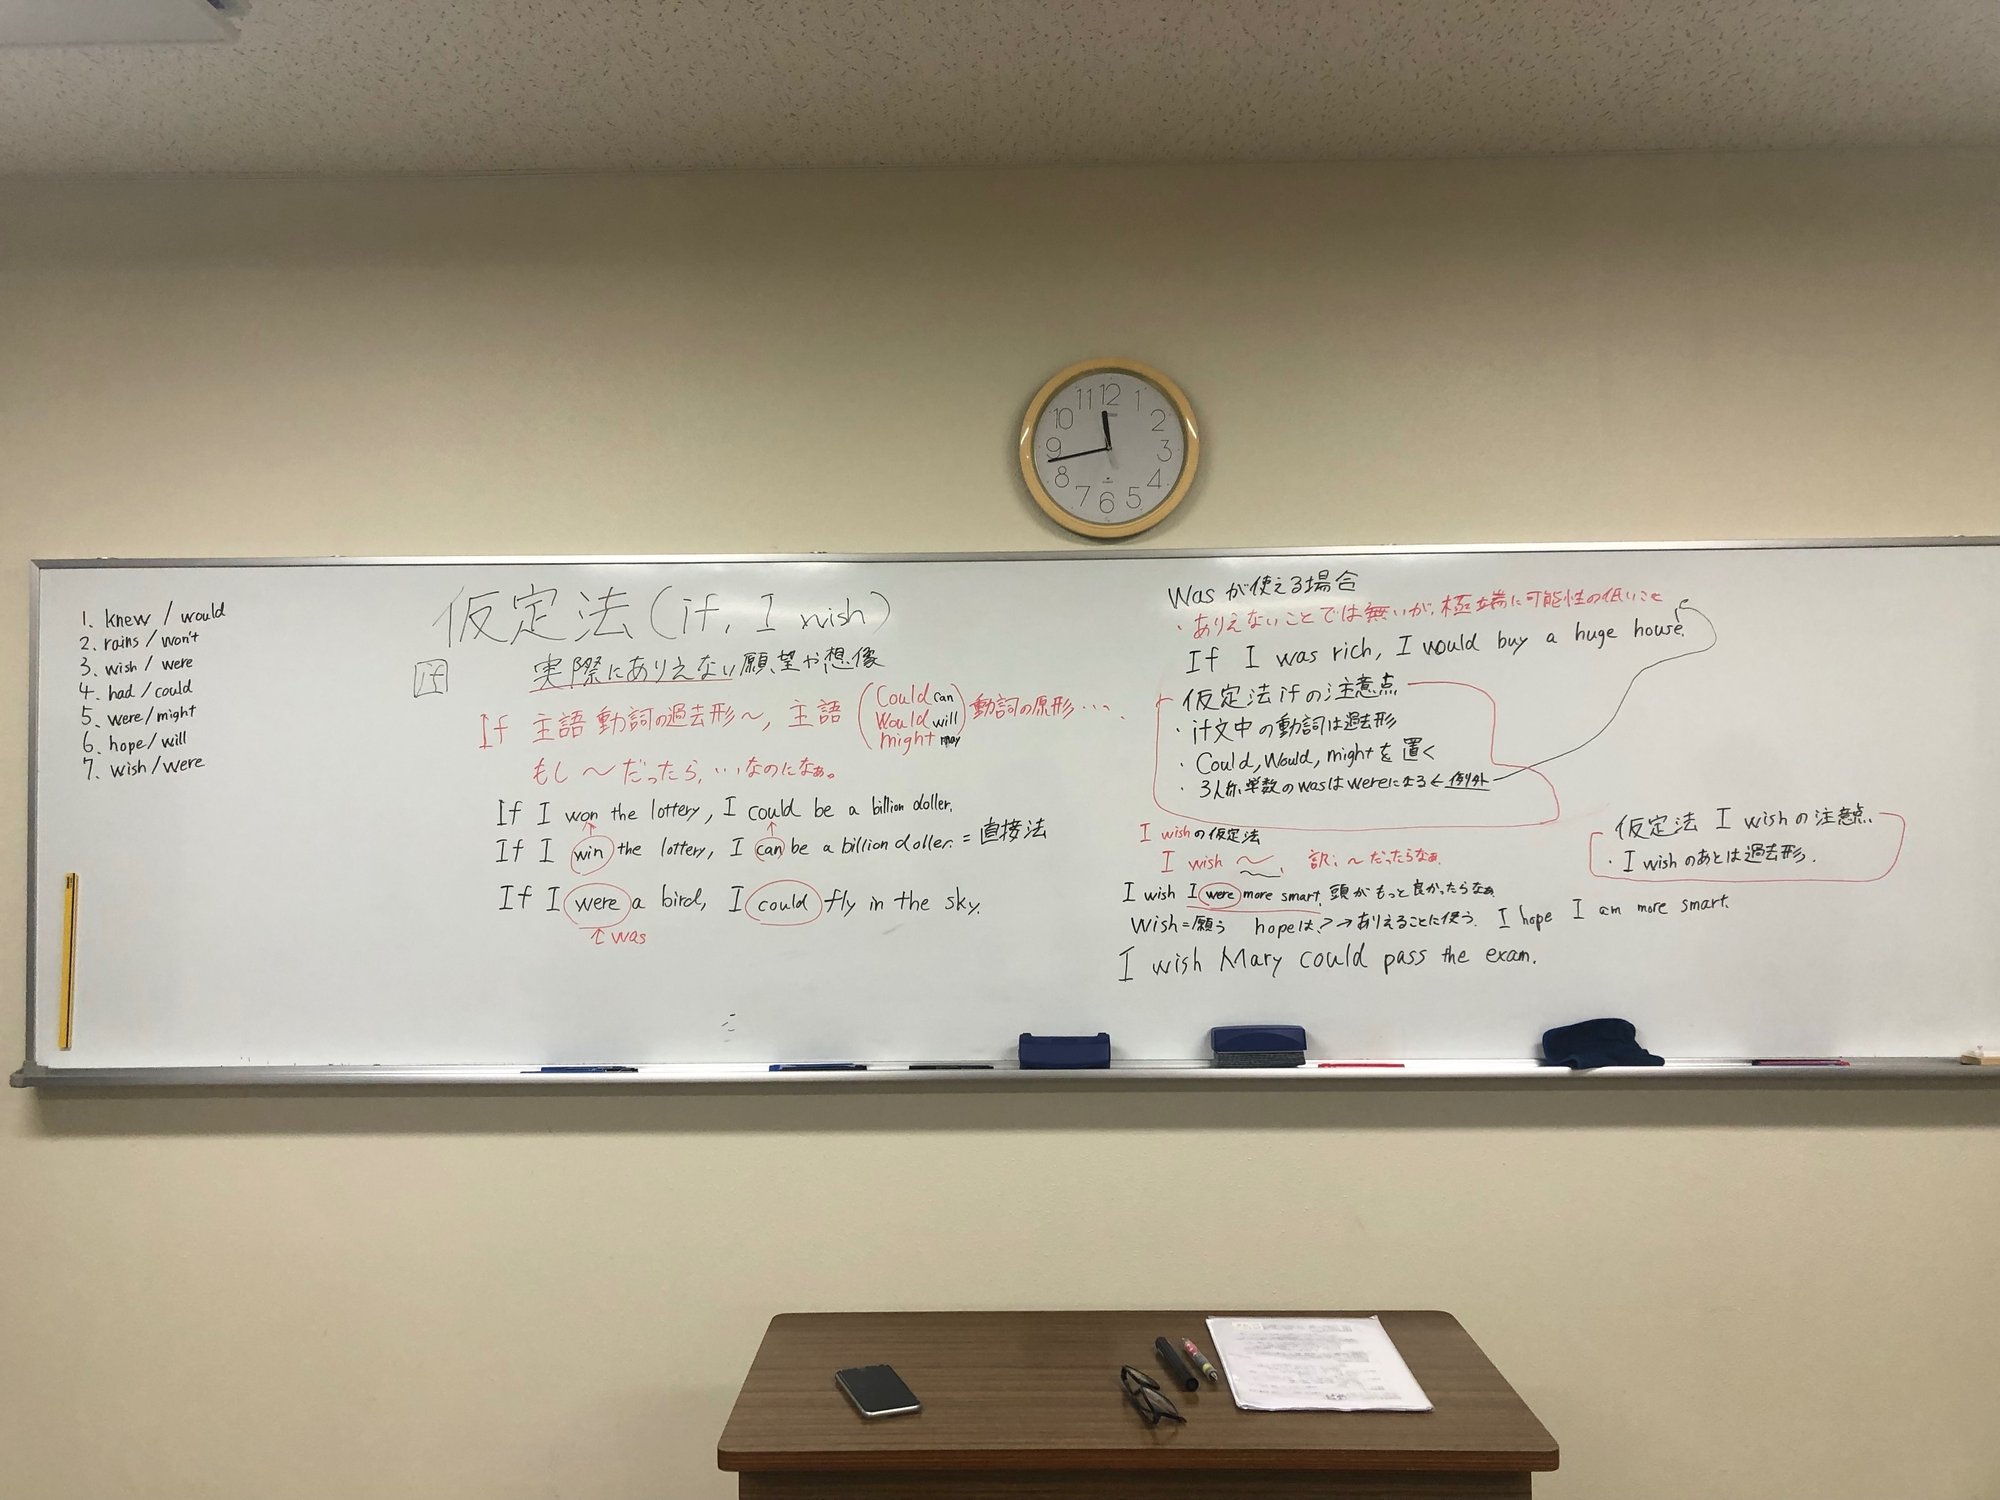 11 12 1
10 2
9 3
8 4
7 6 5
1. knew / would
2. rains / won't
3. wish / were
4. had / could
5. were / might
6. hope / will
7. wish / were
仮定法 (if, I wish)
if 実際にありえない願望や想像
If 主語 動詞の過去形~, 主語 (Could can Would will might may) 動詞の原形・・・.
もし ~だったら, ・・なのになぁ。
If I won the lottery, I could be a billion doller.
If I win the lottery, I can be a billion doller. = 直接法
If I were a bird, I could fly in the sky.
↑ was
Was が使える場合
・ありえないことでは無いが, 極端に可能性の低いこと
If I was rich, I would buy a huge house.
仮定法ifの注意点
・if文中の動詞は過去形
・Could, Would, mightを置く
・3人称単数のwasはwereになる ← 例外
I wishの仮定法
I wish ~. 訳: ~だったらなぁ.
I wish I were more smart. 頭がもっと良かったらなぁ
Wish = 願う hopeは? → ありえることに使う. I hope I am more smart.
I wish Mary could pass the exam.
仮定法 I wishの注意点.
・I wishのあとは過去形.